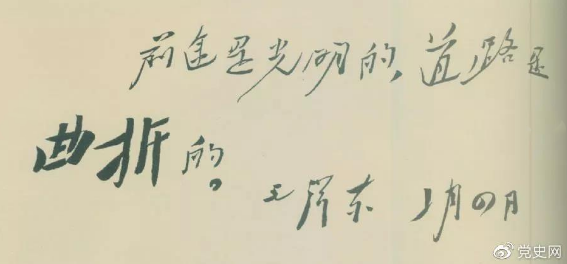 前途是光明的，道路是
曲折的。
毛泽东 月四日
@党史网